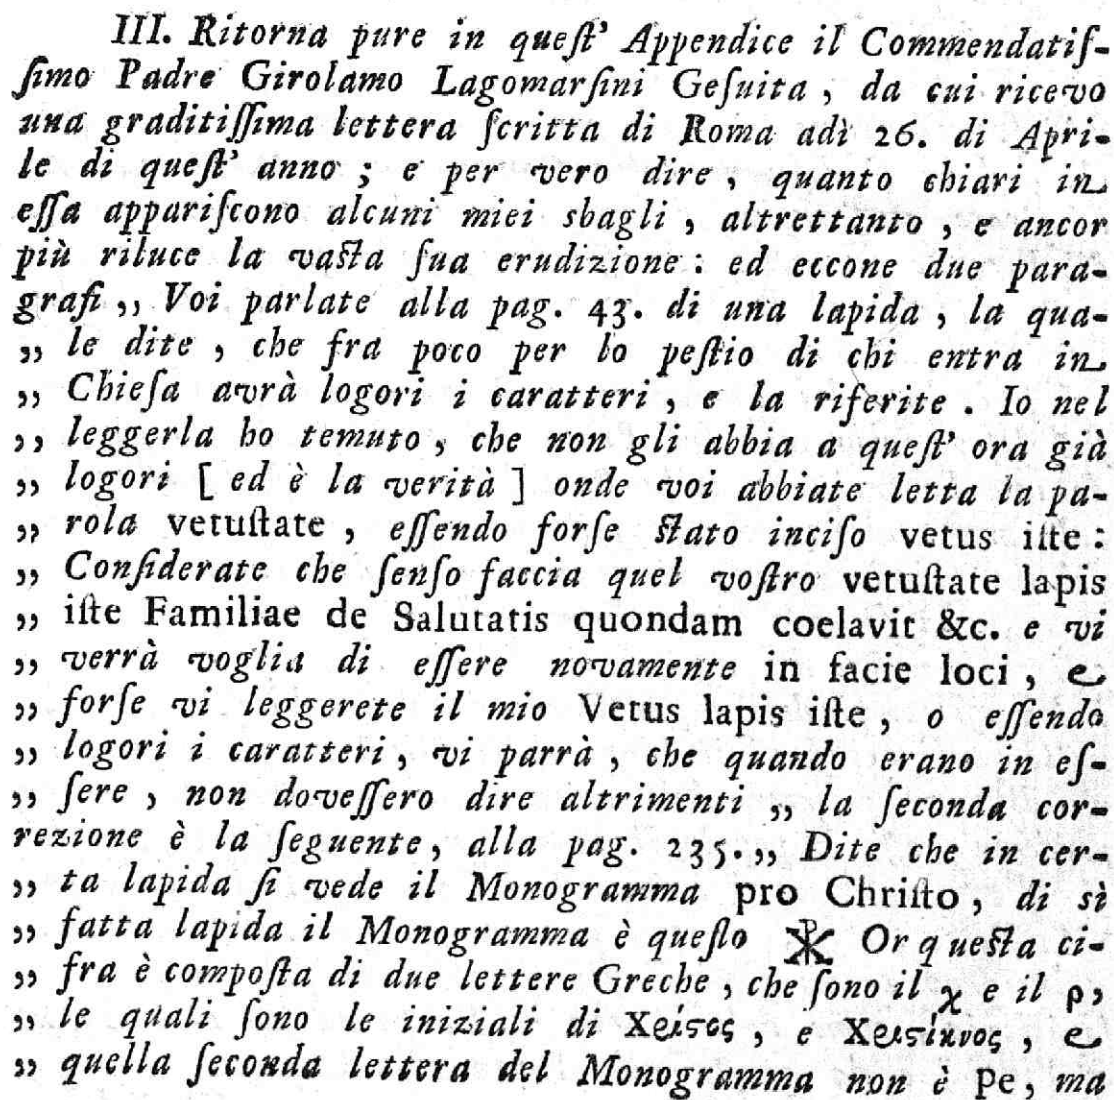 III. Ritorna pure in queſt' Appendice il Commendatiſ-
ſimo Padre Girolamo Lagomarſini Geſuita, da cui ricevo
una graditiſſima lettera ſcritta di Roma adì 26. di Apri-
le di queſt' anno; e per vero dire, quanto chiari in
eſſa appariſcono alcuni miei sbagli, altrettanto, e ancor
più riluce la vaſta ſua erudizione: ed eccone due para-
grafi ,, Voi parlate alla pag. 43. di una lapida, la qua-
,, le dite, che fra poco per lo peſtio di chi entra in
,, Chieſa avrà logori i caratteri, e la riferite. Io nel
,, leggerla ho temuto, che non gli abbia a queſt' ora già
,, logori [ ed è la verità ] onde voi abbiate letta la pa-
,, rola vetuſtate, eſſendo forſe ſtato inciſo vetus iſte:
,, Conſiderate che ſenſo faccia quel voſtro vetuſtate lapis
,, iſte Familiae de Salutatis quondam coelavit &c. e vi
,, verrà voglia di eſſere novamente in facie loci, e
,, forſe vi leggerete il mio Vetus lapis iſte, o eſſendo
,, logori i caratteri, vi parrà, che quando erano in eſ-
,, ſere, non doveſſero dire altrimenti ,, la ſeconda cor-
rezione è la ſeguente, alla pag. 235. ,, Dite che in cer-
,, ta lapida ſi vede il Monogramma pro Chriſto, di sì
,, fatta lapida il Monogramma è queſto ☧ Or queſta ci-
,, fra è compoſta di due lettere Greche, che ſono il χ e il ρ,
,, le quali ſono le iniziali di Χρίστος, e Χριστίανος, e
,, quella ſeconda lettera del Monogramma non è pe, ma